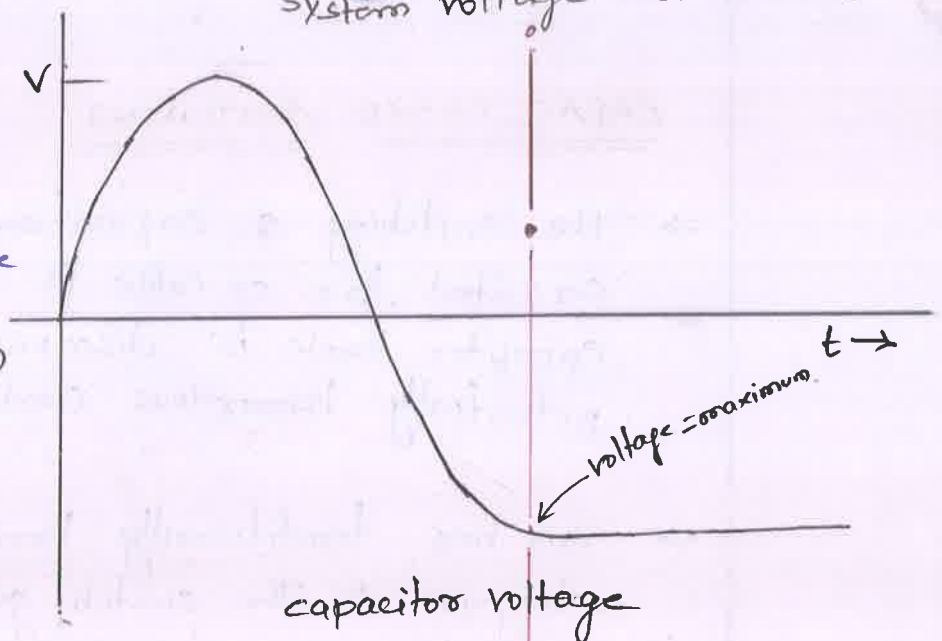 system voltage
V
t →
voltage = maximum
capacitor voltage